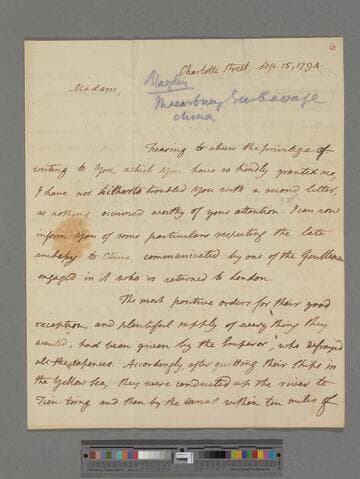 6
Charlotte Street, Sep. 15, 1794.
Madam,
Blagden
Macartney Embassage
China
Fearing to abuse the privilege of
writing to You, which You have so kindly granted me,
I have not hitherto troubled You with a second letter,
as nothing occurred worthy of your attention. I can now
inform You of some particulars respecting the late
embassy to China communicated by one of the Gentlemen
engaged in it who is returned to London.
The most positive orders for their good
reception, and plentiful supply of every thing they
wanted, had been given by the Emperor, who defrayed
all the expences. Accordingly, after quitting their ships in
the Yellow Sea, they were conducted up the river to
Tien-tsing and then by the canal within ten miles of